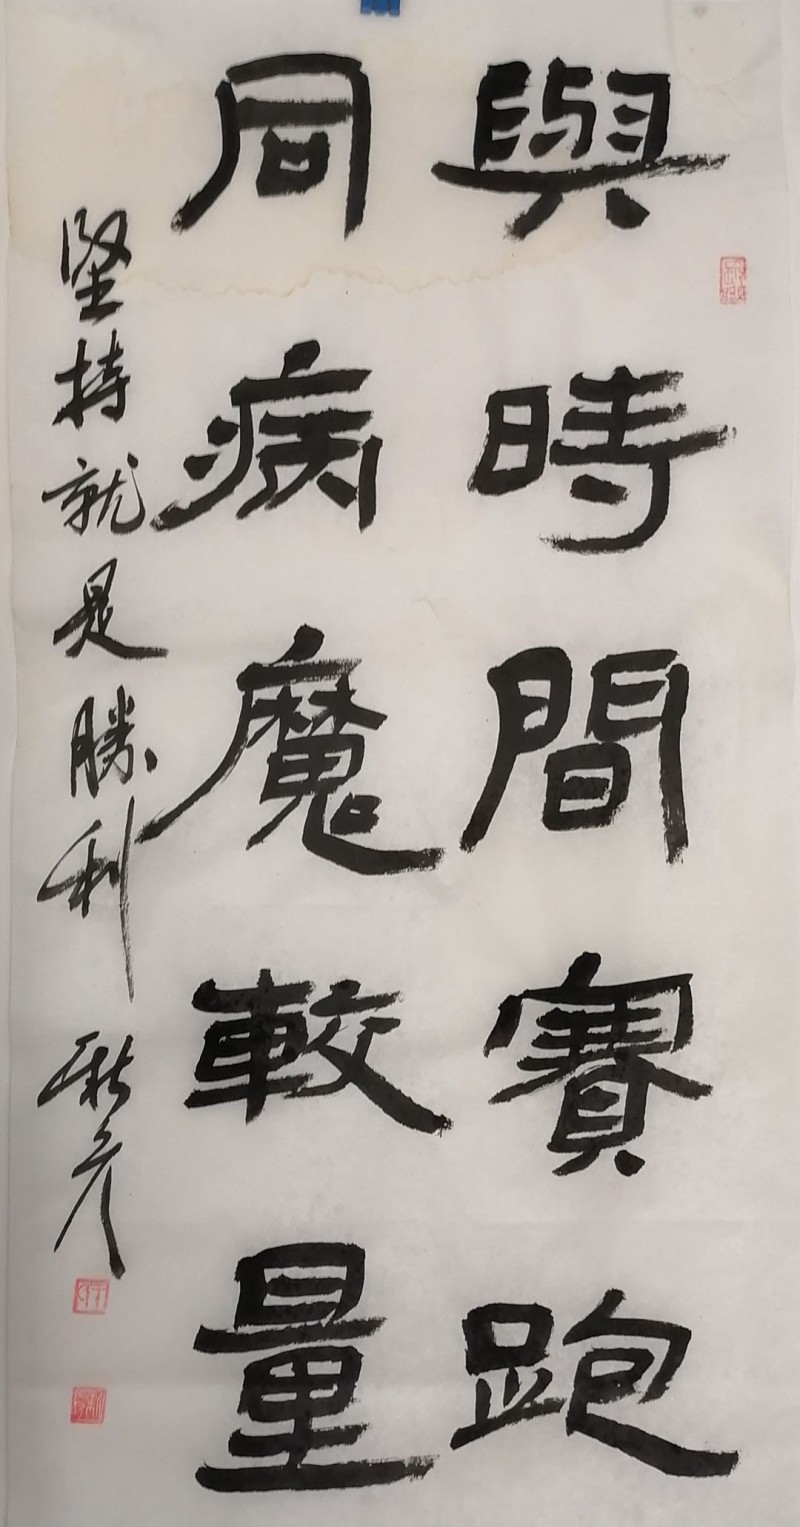 與時間賽跑
同病魔較量
堅持就是勝利